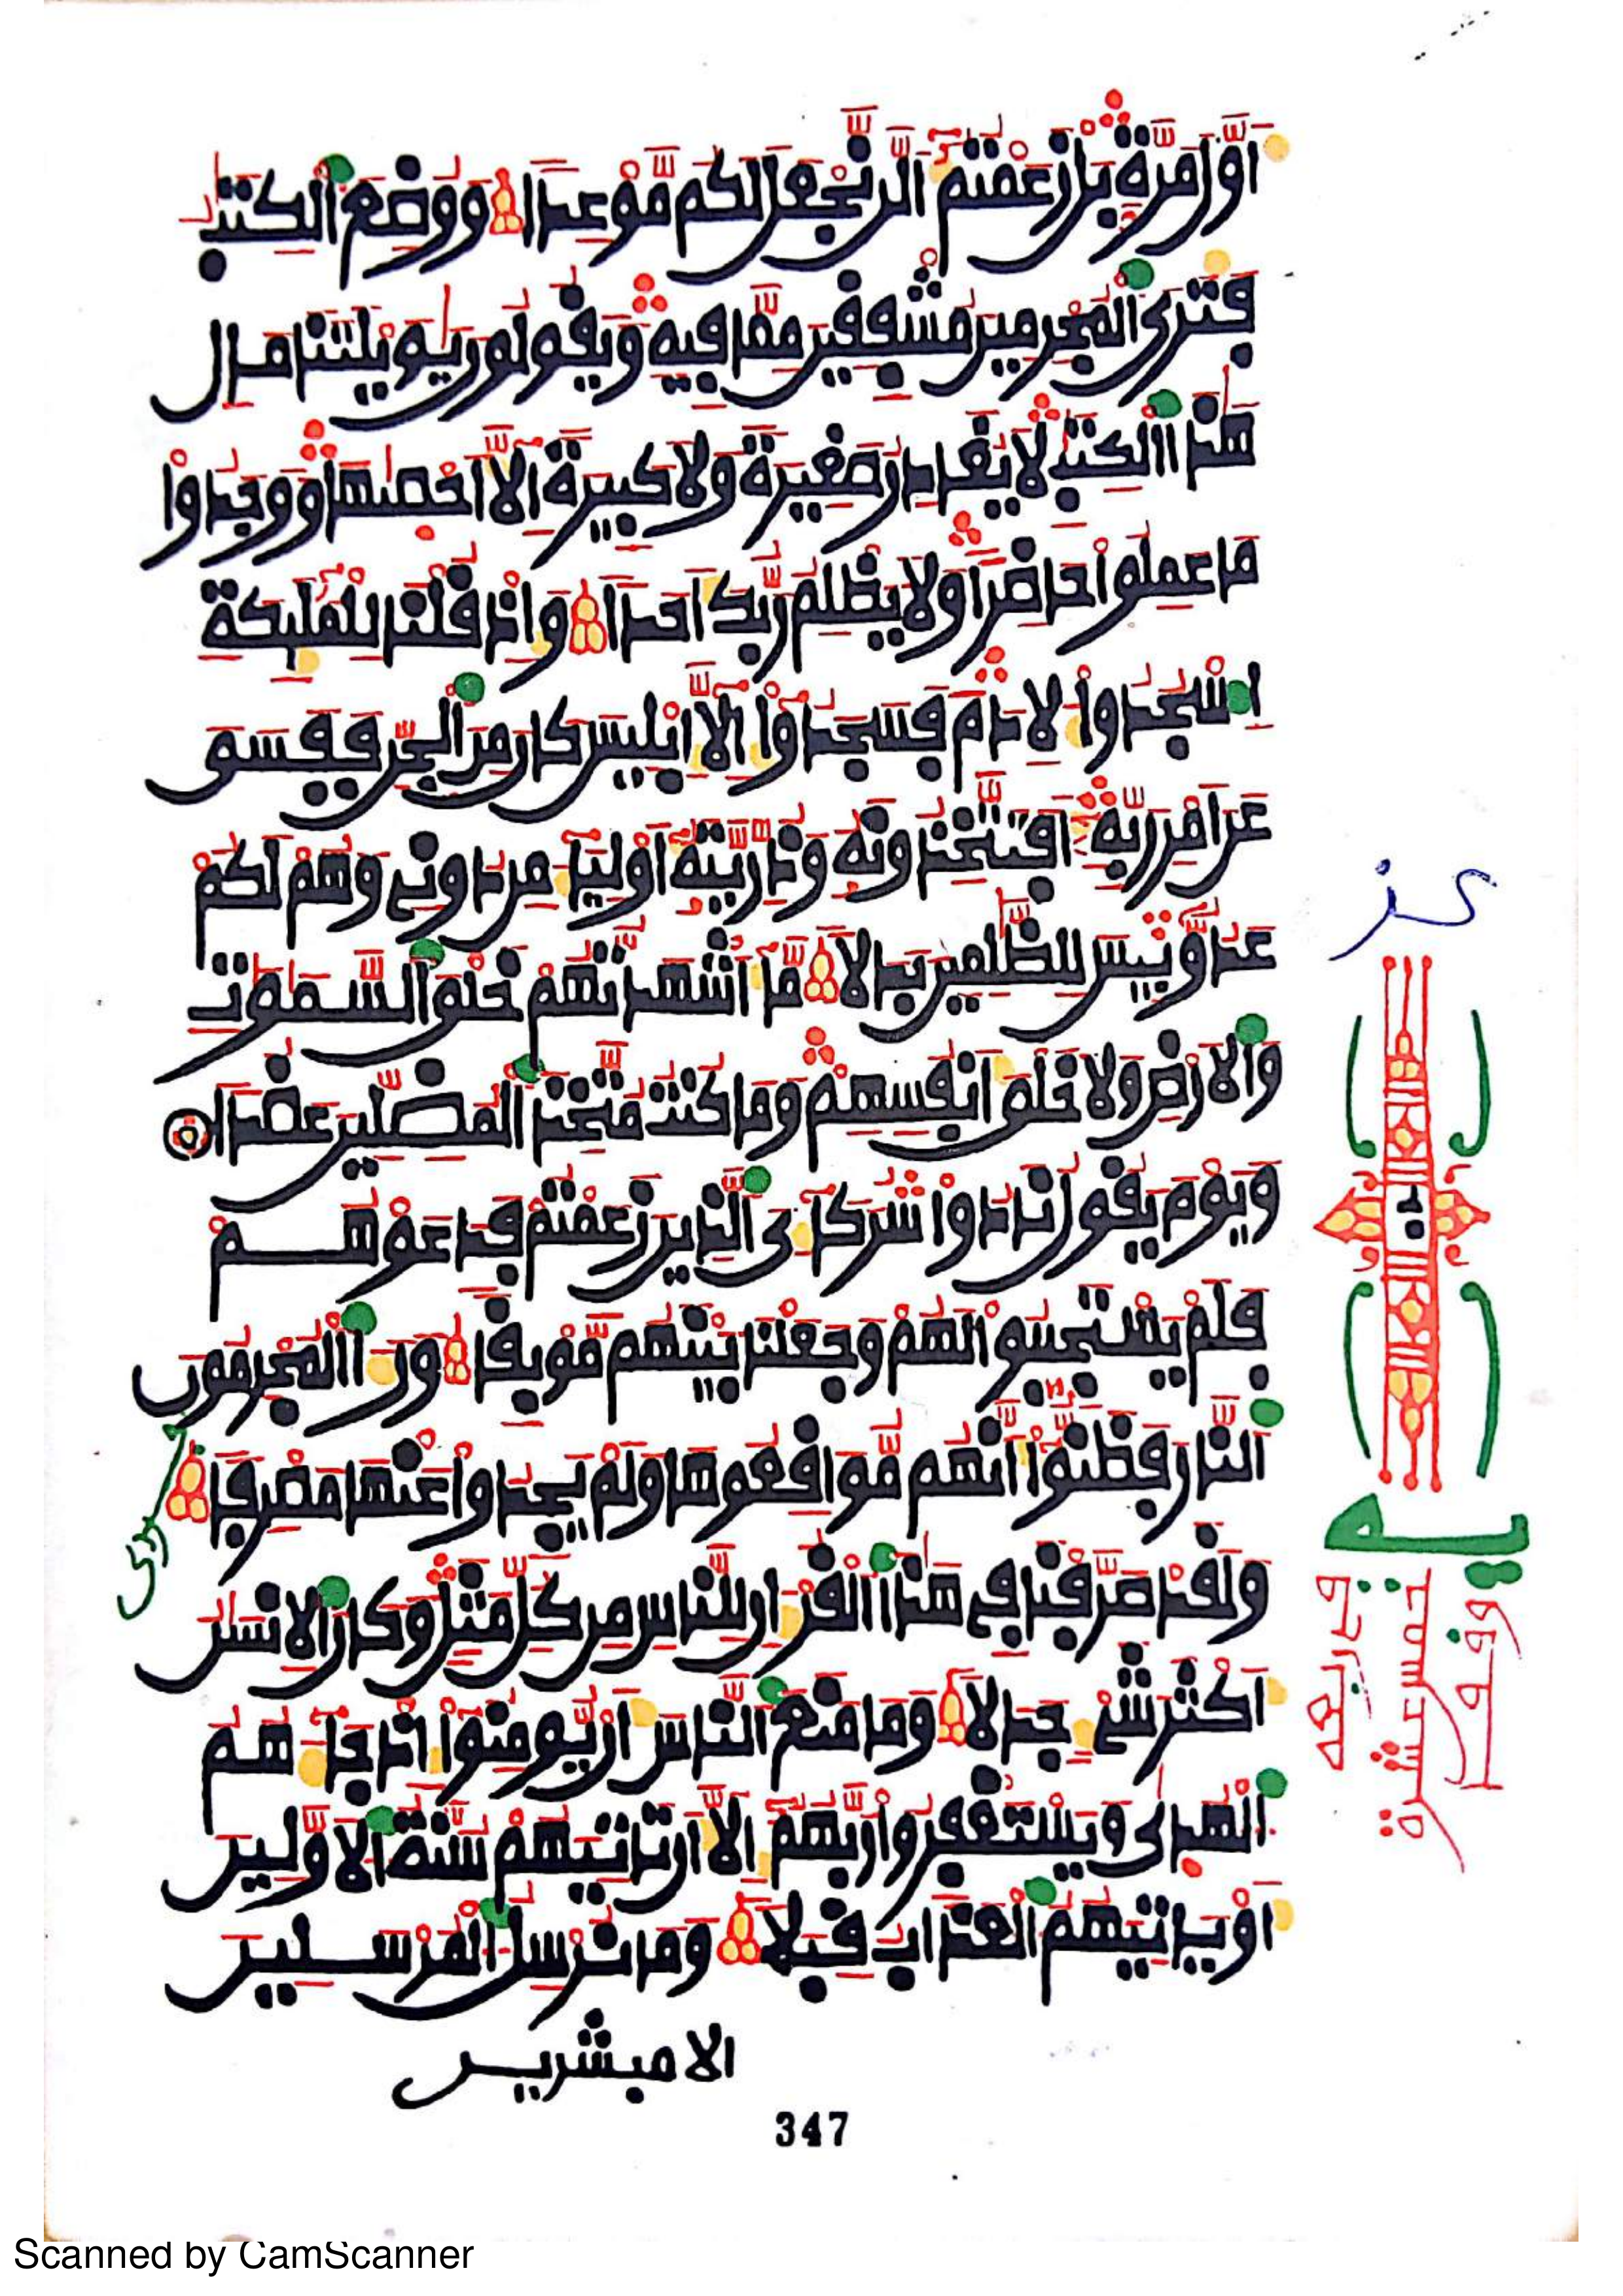 أَوَّلَ مَرَّةٍ بَلْ زَعَمْتُمُ أَلَّن نَّجْعَلَ لَكُم مَّوْعِدًا وَوُضِعَ الْكِتَٰبُ
فَتَرَى الْمُجْرِمِينَ مُشْفِقِينَ مِمَّا فِيهِ وَيَقُولُونَ يَٰوَيْلَتَنَا مَالِ
هَٰذَا الْكِتَٰبِ لَا يُغَادِرُ صَغِيرَةً وَلَا كَبِيرَةً اِلَّا أَحْصَىٰهَا وَوَجَدُوا
مَا عَمِلُوا حَاضِرًا وَلَا يَظْلِمُ رَبُّكَ أَحَدًا وَإِذْ قُلْنَا لِلْمَلَٰئِكَةِ
اِسْجُدُوا لِأَدَمَ فَسَجَدُوا إِلَّا إِبْلِيسَ كَانَ مِنَ الْجِنِّ فَفَسَقَ
عَنَ اَمْرِ رَبِّهِ أَفَتَتَّخِذُونَهُ وَذُرِّيَّتَهُ أَوْلِيَاءَ مِن دُونِي وَهُمْ لَكُمْ
عَدُوٌّ بِيسَ لِلظَّٰلِمِينَ بَدَلًا مَّا أَشْهَدتُّهُمْ خَلْقَ السَّمَٰوَٰتِ
وَالْأَرْضِ وَلَا خَلْقَ أَنفُسِهِمْ وَمَا كُنتُ مُتَّخِذَ الْمُضِلِّينَ عَضُدًا
وَيَوْمَ يَقُولُ نَادُوا شُرَكَاءِيَ الَّذِينَ زَعَمْتُمْ فَدَعَوْهُمْ
فَلَمْ يَسْتَجِيبُوا لَهُمْ وَجَعَلْنَا بَيْنَهُم مَّوْبِقًا وَرَءَا الْمُجْرِمُونَ
النَّارَ فَظَنُّوا أَنَّهُم مُّوَاقِعُوهَا وَلَمْ يَجِدُوا عَنْهَا مَصْرِفًا
وَلَقَدْ صَرَّفْنَا فِي هَٰذَا الْقُرْءَانِ لِلنَّاسِ مِن كُلِّ مَثَلٍ وَكَانَ الْإِنسَٰنُ
أَكْثَرَ شَيْءٍ جَدَلًا وَمَا مَنَعَ النَّاسَ أَن يُّومِنُوا إِذْ جَاءَهُمُ
الْهُدَىٰ وَيَسْتَغْفِرُوا رَبَّهُمُ إِلَّا أَن تَاتِيَهُمْ سُنَّةُ الْأَوَّلِينَ
أَوْ يَاتِيَهُمُ الْعَذَابُ قِبَلًا وَمَا نُرْسِلُ الْمُرْسَلِينَ
الا مبشرين
347
Scanned by CamScanner